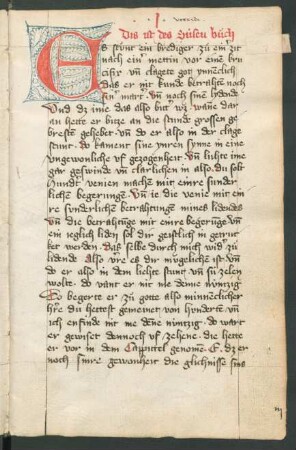 Dis ist des Süsen büch
Es stünt ein brediger zü ein zit
nach ein mettin vor eime cru
cifix vn clagete got ynneclich
das er nit kunde betrahte noch
sin mart vn noch sime lidende
Vnd dz ime das also bitt wz wane dar
an hette er bitze an die stunde grossen ge
bresten gehebet vn do er also in der clage
stunt do koment sine ussern synne in eine
ungewonliche uf gezogenheit vn luhte ime
gar geswinde vn clarlichen in also du solt
hundt venien machen mit einre sunder
lichen begerunge vn ie die venie mit ein
re sunderlichen betrahtunge mines lidendes
vn die betrahtunge mit einre begerunge vn
ein ieglich liden sol dir geistlich in getruc
ket werden das selbe durch mich wid zü
lidende Also vre es dir mügelichē ist vn
do er also in dem lieht stunt vn sü zelen
wolte do vant er nit me denne nüntzig
Do begerte er zü gotte also minneclicher
h're du hettest gemeinet von hunderte vn
ich enfinde nit me dēne nüntzig do wart
er gewiset dennoch uf zehene die hette
er vor in dem Cappittel genomē E dz er
noch sinre gewonheit die glichnisse sins